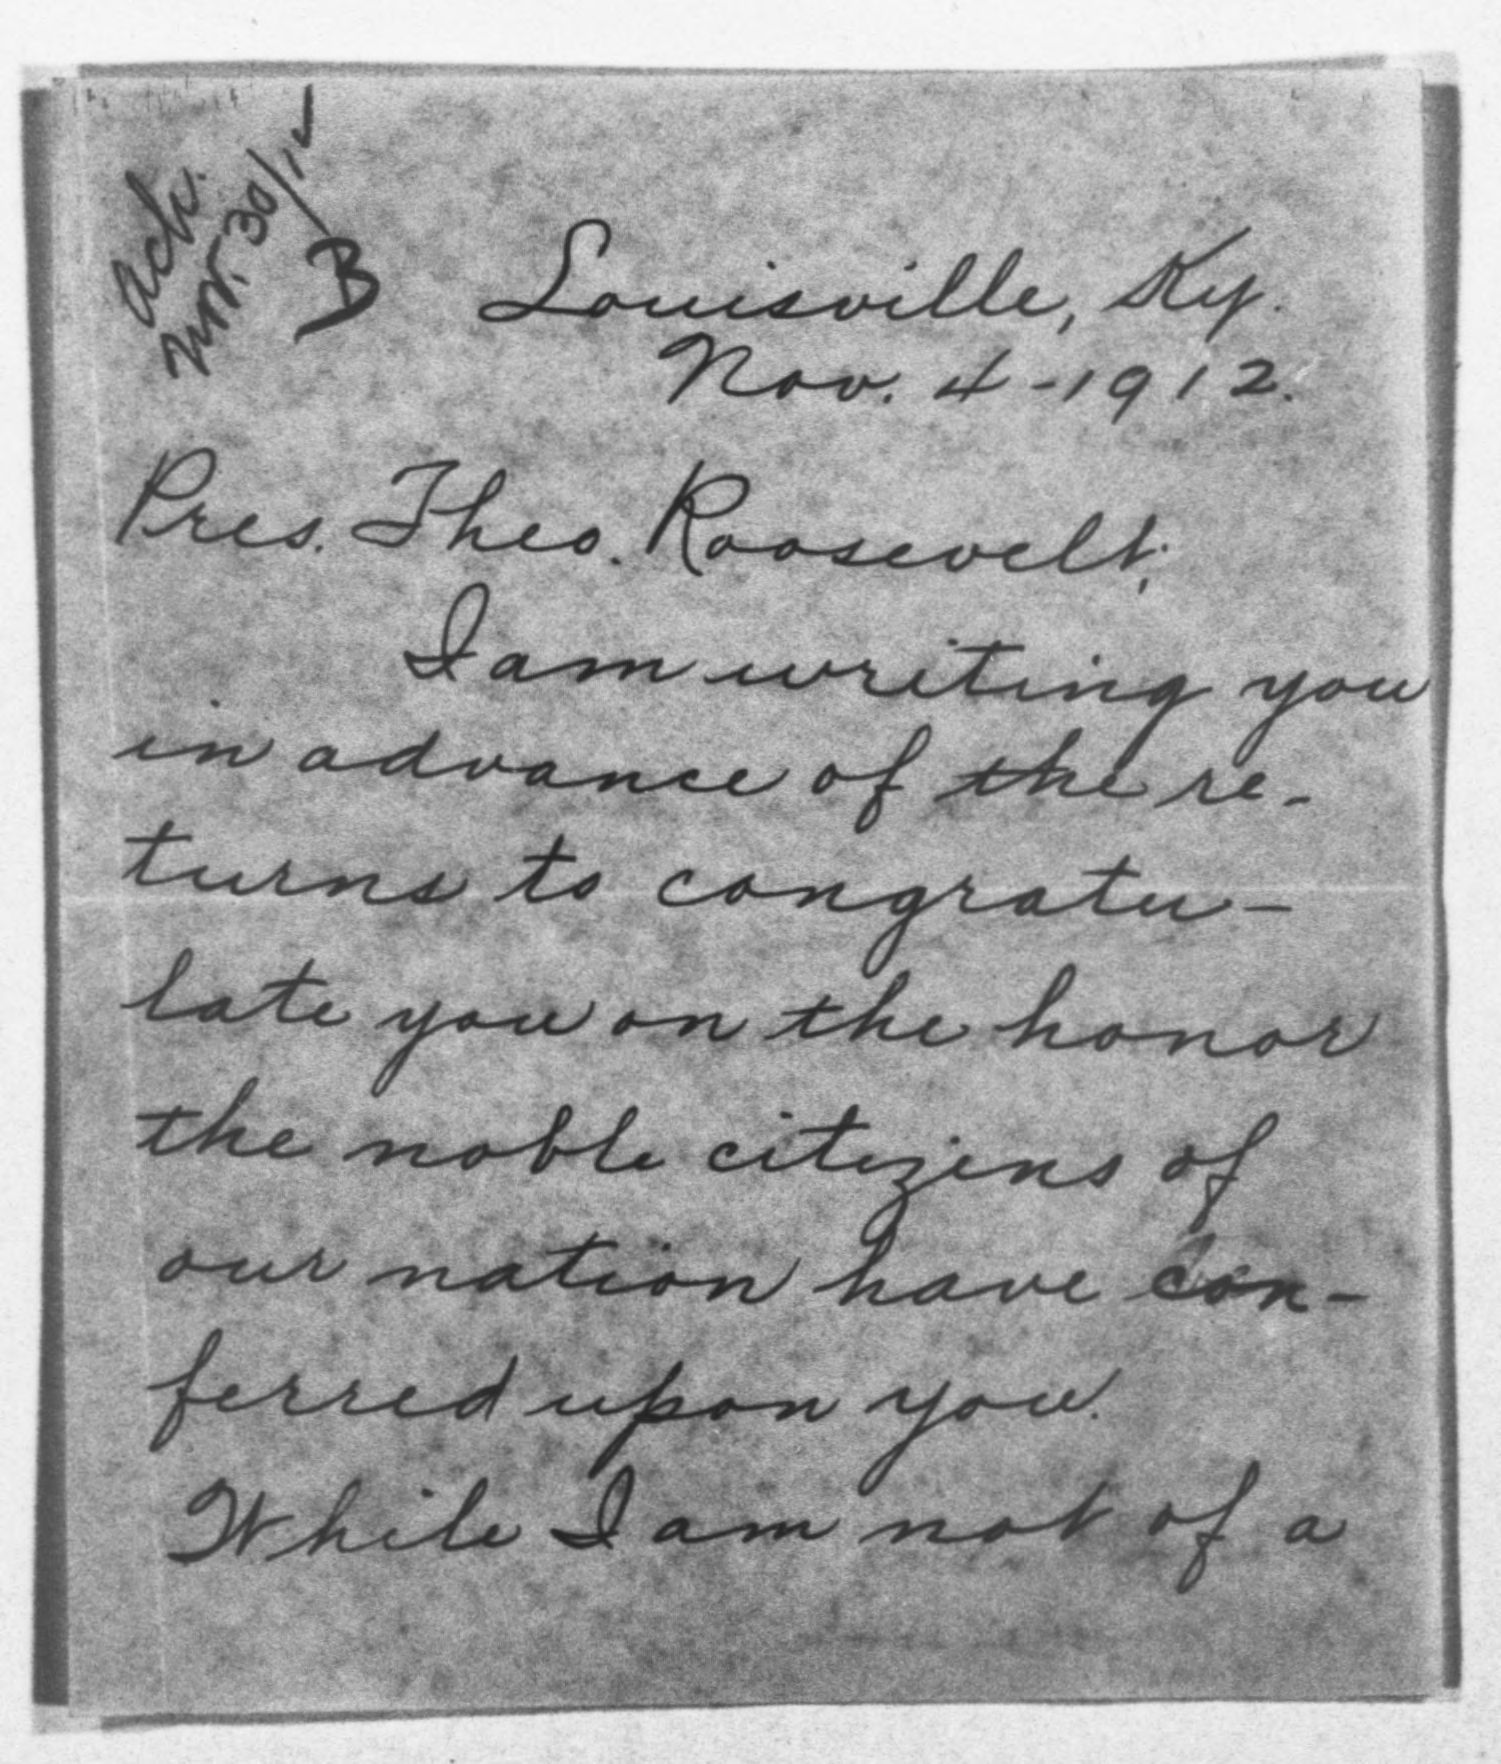 Ack.
Nov. 30/12
B
Louisville, Ky.
Nov. 4-1912.
Pres. Theo. Roosevelt;
I am writing you
in advance of the re-
turns to congratu-
late you on the honor
the noble citizens of
our nation have con-
ferred upon you.
While I am not of a